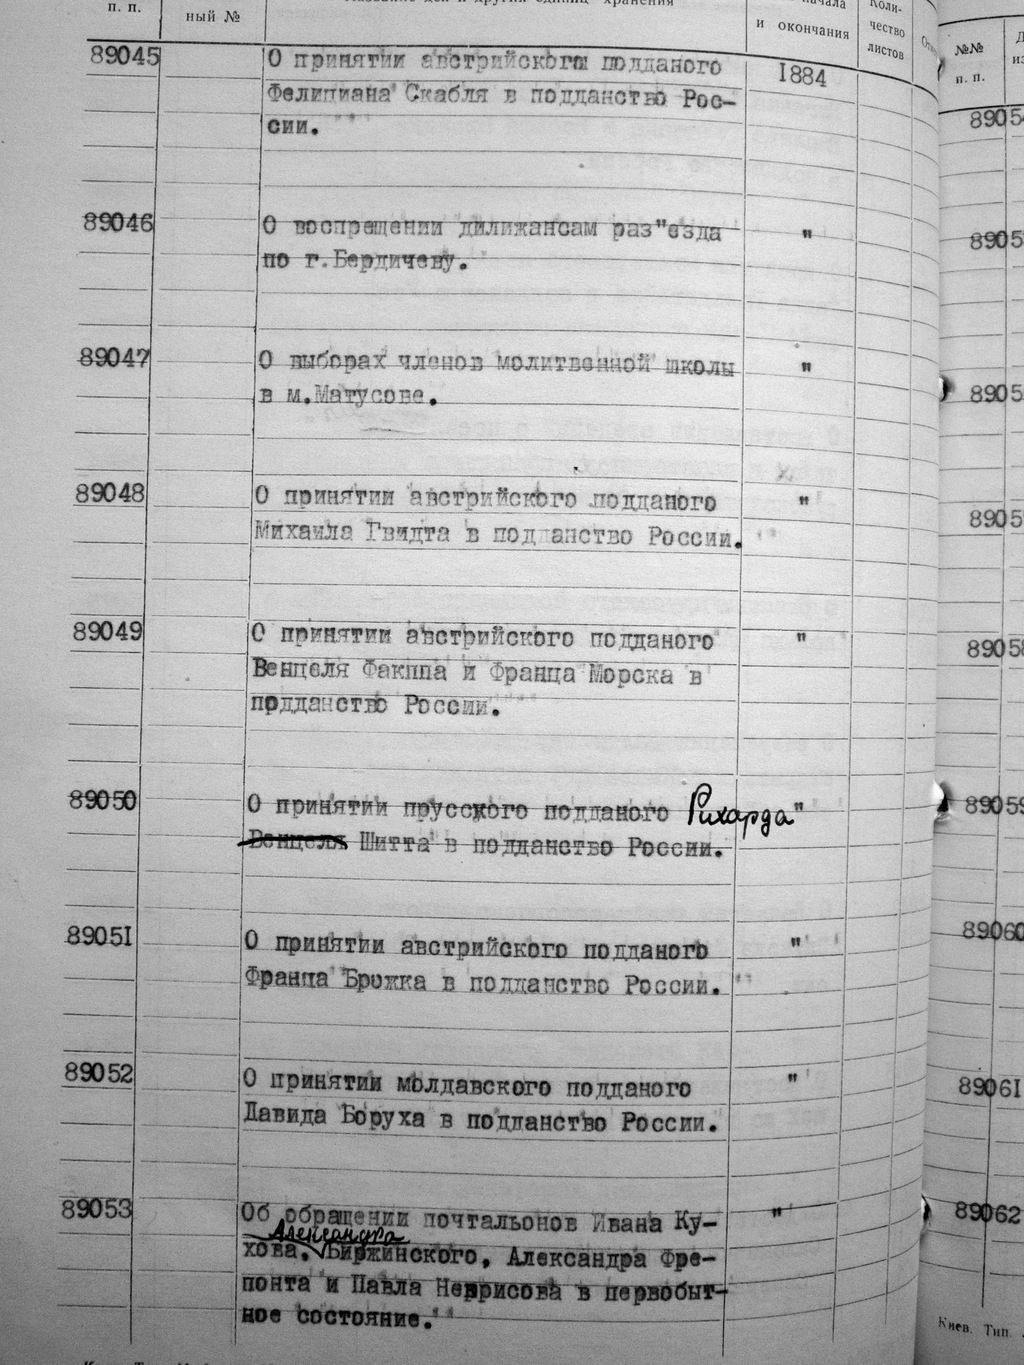 п. п.
ный №
Название дел и других единиц хранения
начала
и окончания
Коли-
чество
листов
89045
О принятии австрийского подданого
Фелициана Скабля в подданство Рос-
сии.
1884
89046
О воспрещении дилижансам раз"езда
по г.Бердичеву.
"
89047
О выборах членов молитвенной школы
в м.Матусове.
"
89048
О принятии австрийского подданого
Михаила Гвидта в подданство России.
"
89049
О принятии австрийского подданого
Венцеля Факппа и Франца Морска в
подданство России.
"
89050
О принятии прусского подданого Рихарда "
Венцеля Шитта в подданство России.
89051
О принятии австрийского подданого
Франца Брожка в подданство России.
"
89052
О принятии молдавского подданого
Давида Боруха в подданство России.
"
89053
Об обращении почтальонов Ивана Ку-
Александра
хова, Биржинского, Александра Фре-
понта и Павла Неврисова в первобыт-
ное состояние.
"
№№
п. п.
8905
8905
8905
8905
89058
89059
89060
89061
89062
Киев. Тип.